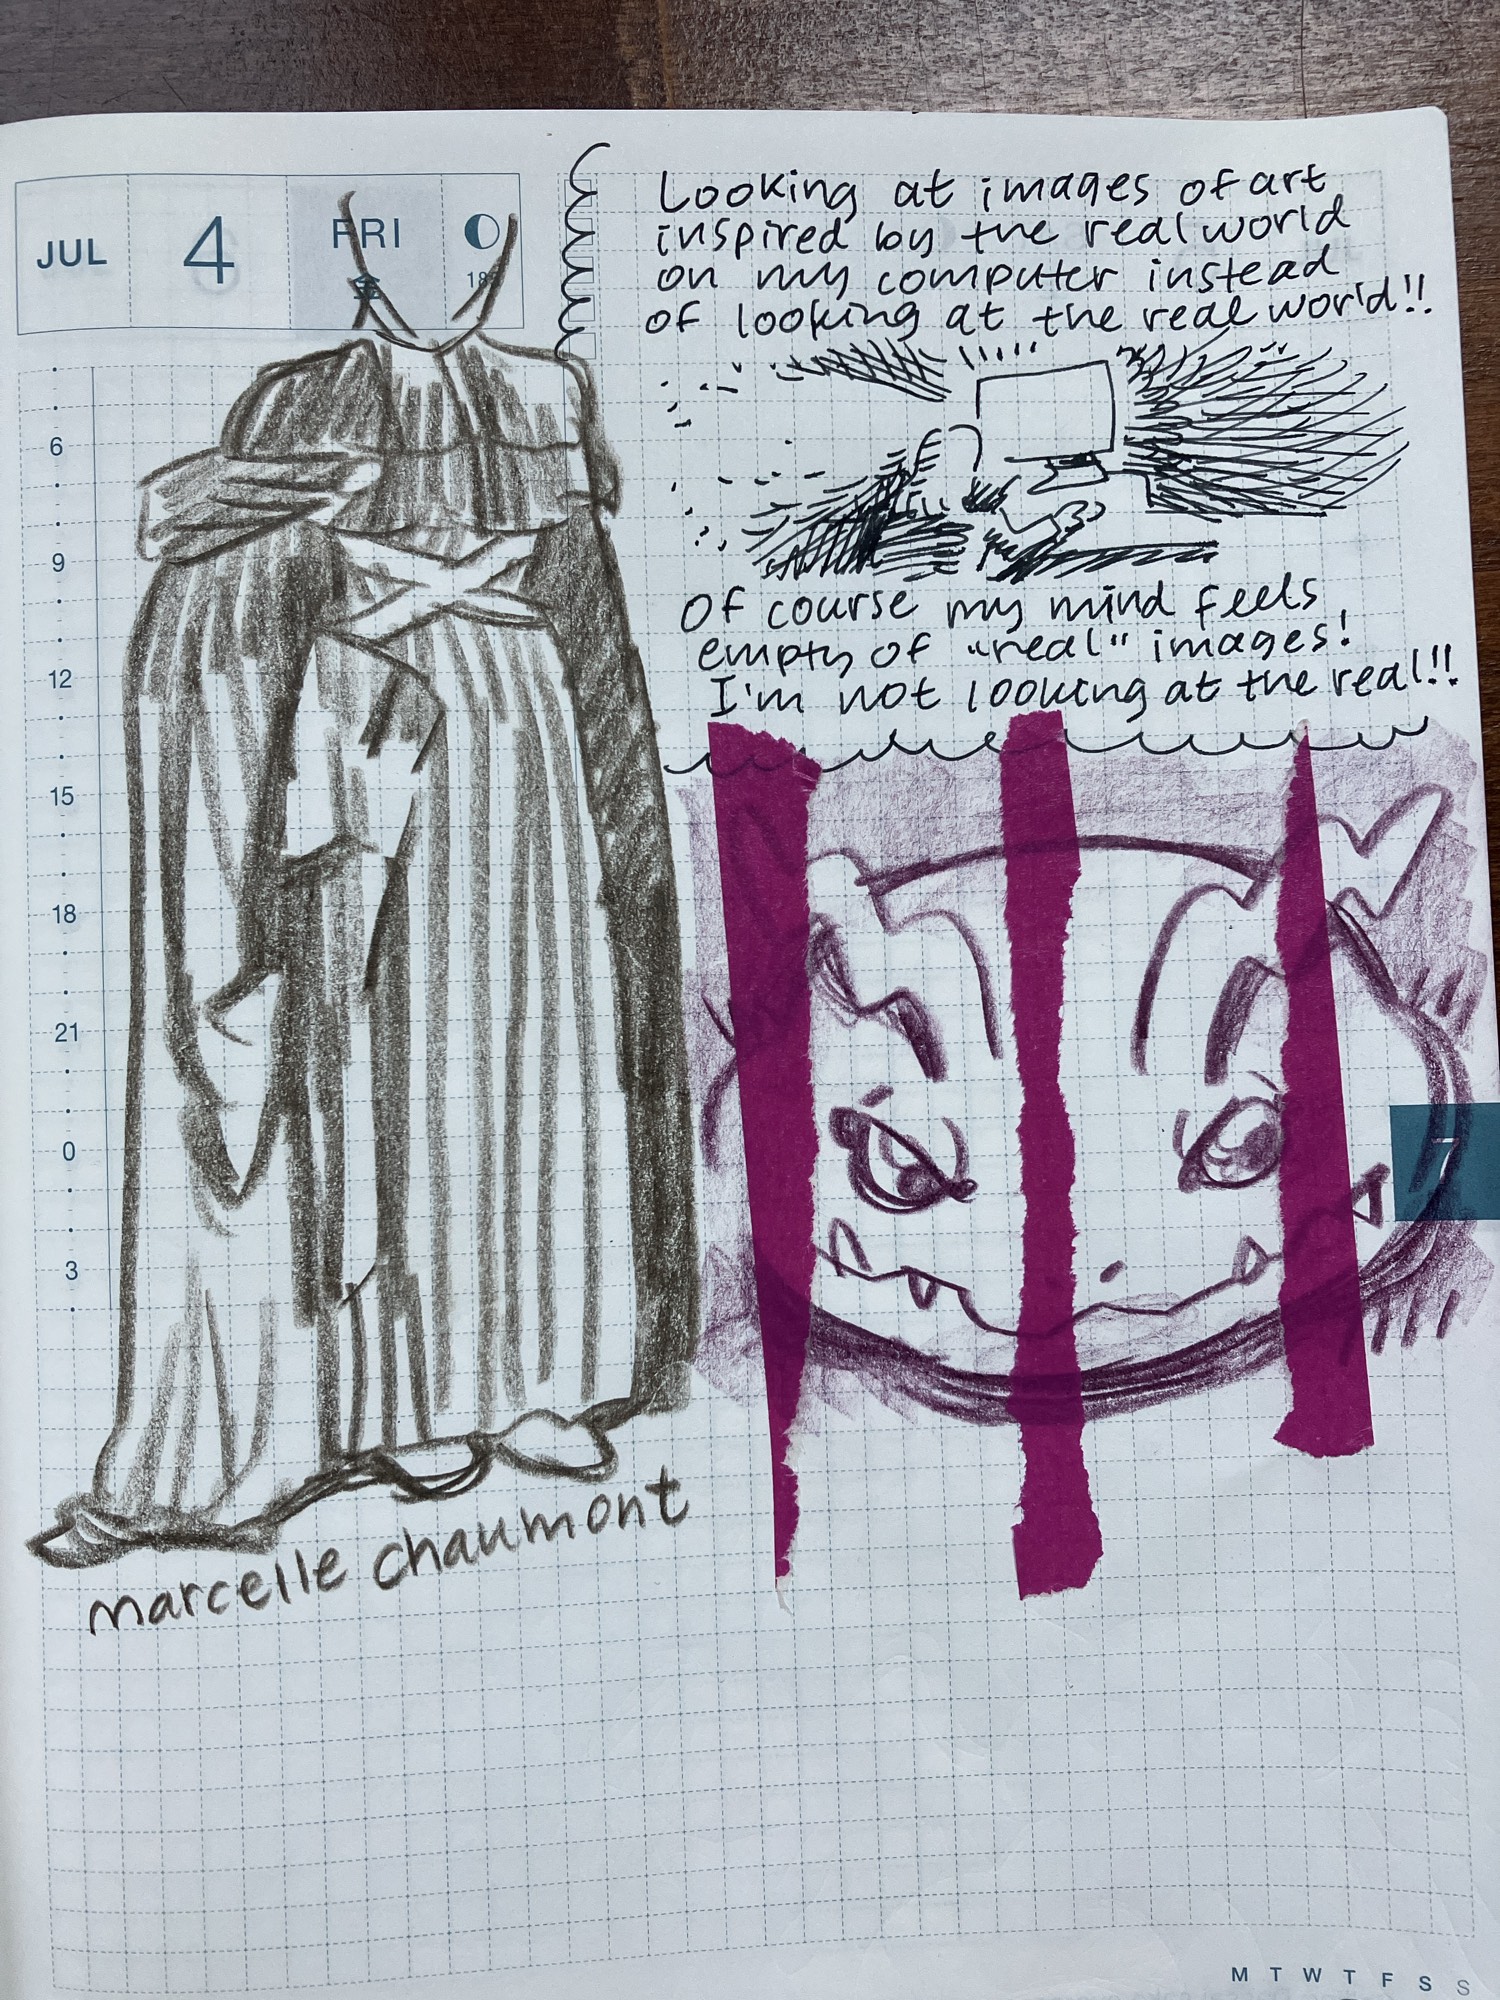 JUL 4 FRI
金 18
Looking at images of art
inspired by the real world
on my computer instead
of looking at the real world!!
6
9
12
15
18
21
0
3
Of course my mind feels
empty of "real" images!
I'm not looking at the real!!
7
marcelle chaumont
M T W T F S S